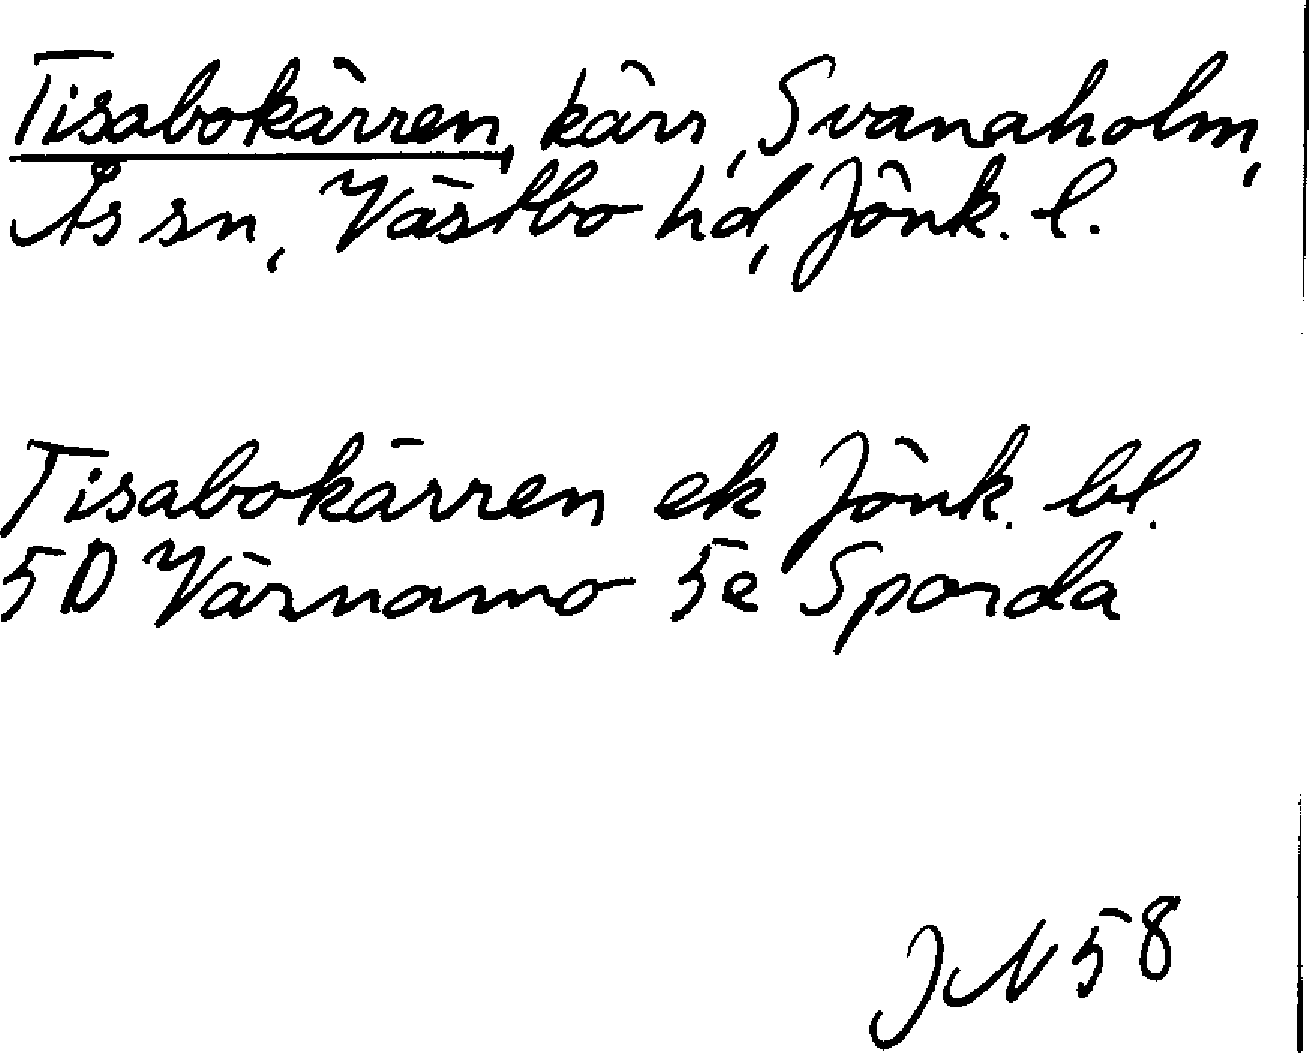 Tisabokärren, kärr, Svanaholm,
Ås sn, Västbo hd, Jönk. l.
Tisabokärren ek Jönk. bl.
5D Värnamo 5e Sporda
JN 58